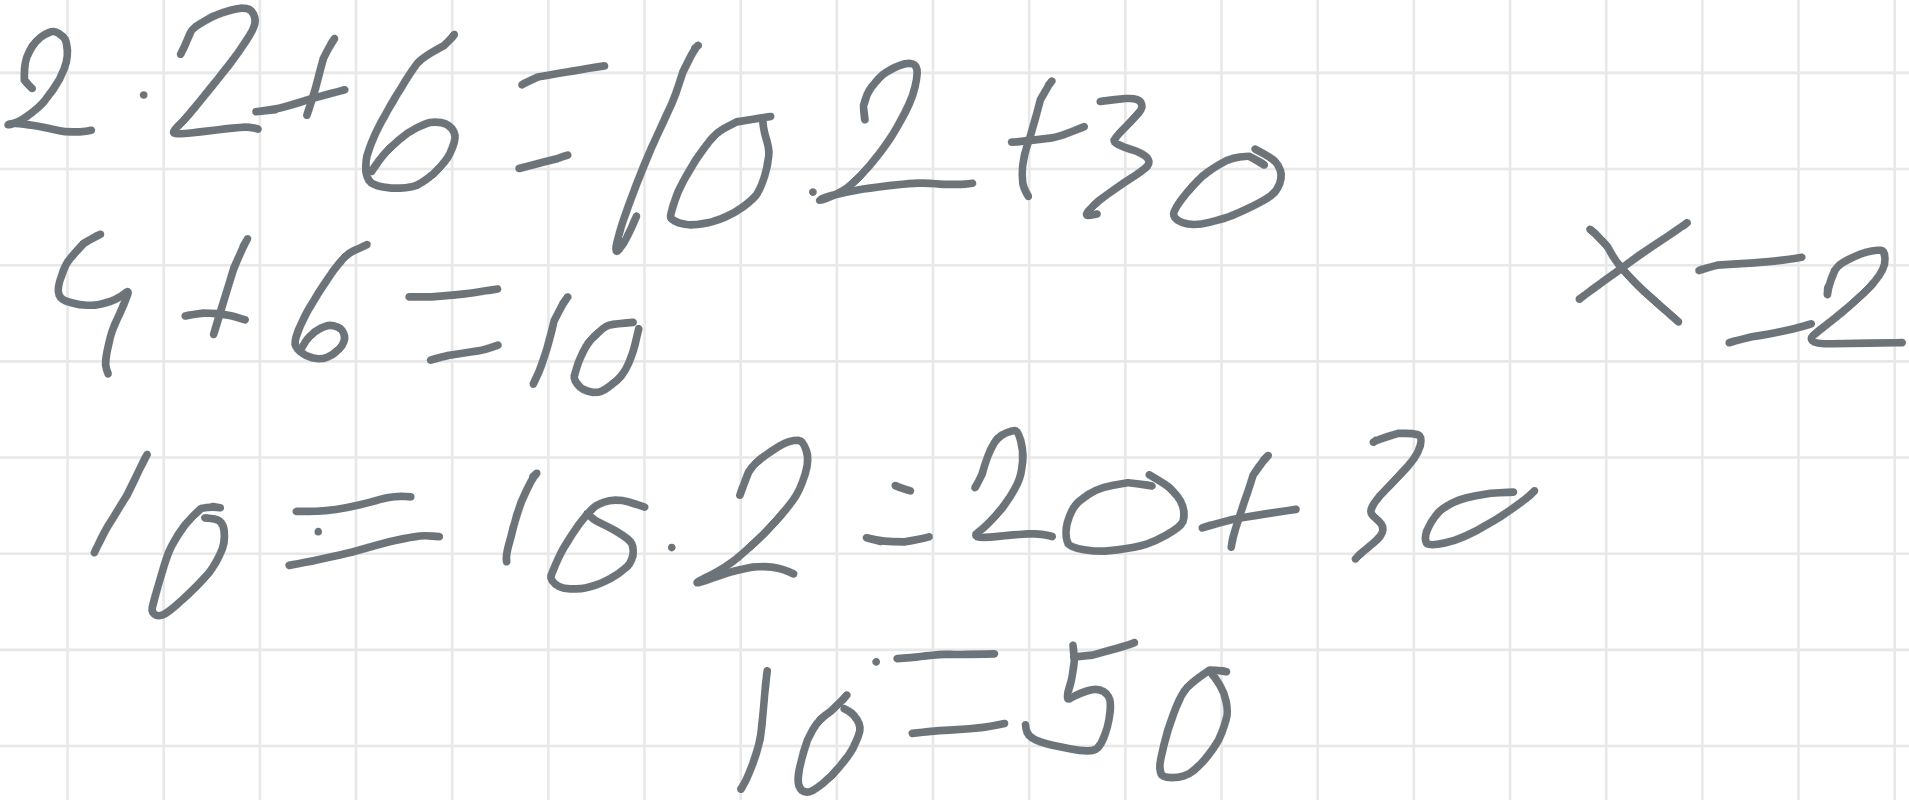 2·2+6=10·2+30
4+6=10
x=2
10=10·2=20+30
10=50